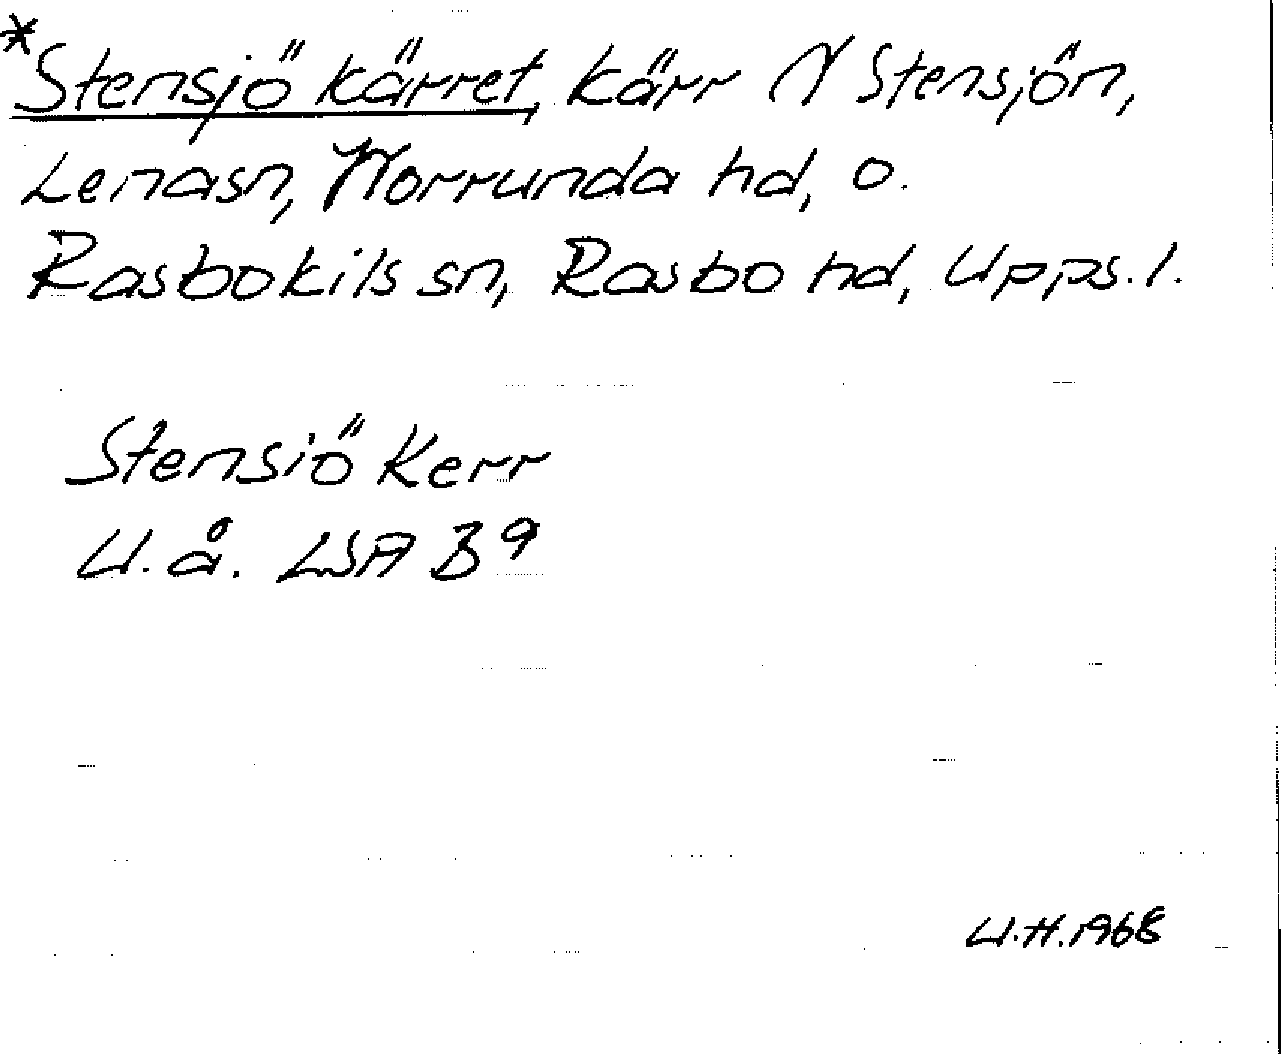 *Stensjö kärret, kärr N Stensjön,
Lenasn, Norrunda hd, o.
Rasbokils sn, Rasbo hd, Upps. l.
Stensiö Kerr
U. å. LSA B 9
U.H. 1968